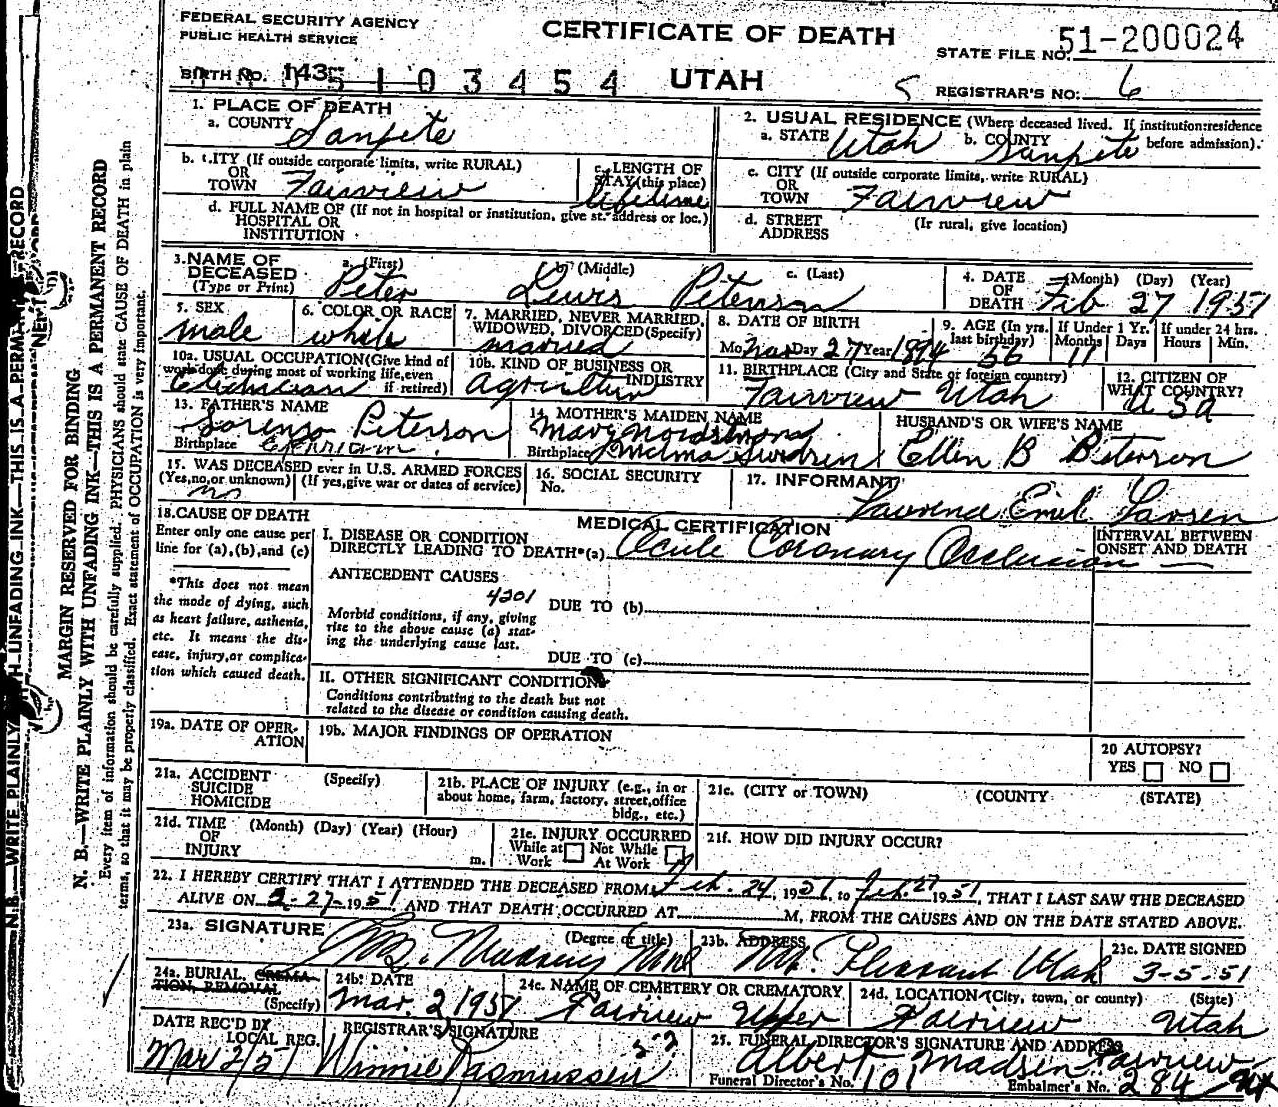 FEDERAL SECURITY AGENCY
PUBLIC HEALTH SERVICE
CERTIFICATE OF DEATH
UTAH
STATE FILE NO. 51-200024
BIRTH NO. 143
5 1 0 3 4 5 4
REGISTRAR'S NO: 6
1. PLACE OF DEATH
a. COUNTY Sanpete
2. USUAL RESIDENCE (Where deceased lived. If institution: residence before admission).
a. STATE Utah b. COUNTY Sanpete
b. CITY (If outside corporate limits, write RURAL) OR TOWN Fairview
c. LENGTH OF STAY (this place) Lifetime
c. CITY (If outside corporate limits, write RURAL) OR TOWN Fairview
d. FULL NAME OF (If not in hospital or institution, give st. address or loc.) HOSPITAL OR INSTITUTION
d. STREET ADDRESS (If rural, give location)
3. NAME OF DECEASED (Type or Print) a. (First) Peter b. (Middle) Lewis c. (Last) Peterson
4. DATE OF DEATH (Month) (Day) (Year) Feb 27 1951
5. SEX male
6. COLOR OR RACE white
7. MARRIED, NEVER MARRIED, WIDOWED, DIVORCED (Specify) married
8. DATE OF BIRTH Mo. Mar Day 27 Year 1894
9. AGE (In yrs. last birthday) 56
If Under 1 Yr. Months 11 Days
If under 24 hrs. Hours Min.
10a. USUAL OCCUPATION (Give kind of work done during most of working life, even if retired)
10b. KIND OF BUSINESS OR INDUSTRY
11. BIRTHPLACE (City and State or foreign country) Fairview Utah
12. CITIZEN OF WHAT COUNTRY? USA
13. FATHER'S NAME Lorenzo Peterson
Birthplace Ephriam
14. MOTHER'S MAIDEN NAME Mary
Birthplace
HUSBAND'S OR WIFE'S NAME Ellen B Peterson
15. WAS DECEASED ever in U.S. ARMED FORCES
(Yes, no, or unknown) (If yes, give war or dates of service)
no
16. SOCIAL SECURITY No.
17. INFORMANT Lawrence Emil Larsen
18. CAUSE OF DEATH
Enter only one cause per line for (a), (b), and (c)
*This does not mean the mode of dying, such as heart failure, asthenia, etc. It means the disease, injury, or complication which caused death.
MEDICAL CERTIFICATION
I. DISEASE OR CONDITION DIRECTLY LEADING TO DEATH*(a) Acute Coronary Occlusion
INTERVAL BETWEEN ONSET AND DEATH
ANTECEDENT CAUSES
4201
Morbid conditions, if any, giving rise to the above cause (a) stating the underlying cause last.
DUE TO (b)
DUE TO (c)
II. OTHER SIGNIFICANT CONDITIONS
Conditions contributing to the death but not related to the disease or condition causing death.
19a. DATE OF OPERATION
19b. MAJOR FINDINGS OF OPERATION
20 AUTOPSY?
YES NO
21a. ACCIDENT SUICIDE HOMICIDE (Specify)
21b. PLACE OF INJURY (e.g., in or about home, farm, factory, street, office bldg., etc.)
21c. (CITY or TOWN) (COUNTY (STATE)
21d. TIME OF INJURY (Month) (Day) (Year) (Hour) m.
21e. INJURY OCCURRED While at Work Not While At Work
21f. HOW DID INJURY OCCUR?
22. I HEREBY CERTIFY THAT I ATTENDED THE DECEASED FROM Feb. 24, 1951, to Feb. 27 1951, THAT I LAST SAW THE DECEASED
ALIVE ON 2-27-1951, AND THAT DEATH OCCURRED AT M, FROM THE CAUSES AND ON THE DATE STATED ABOVE.
23a. SIGNATURE (Degree or title)
23b. ADDRESS Mt. Pleasant Utah
23c. DATE SIGNED 3-5-51
24a. BURIAL, CREMATION, REMOVAL (Specify)
24b. DATE Mar. 2 1951
24c. NAME OF CEMETERY OR CREMATORY Fairview Upper
24d. LOCATION (City, town, or county) (State) Fairview Utah
DATE REC'D BY LOCAL REG. Mar 2/51
REGISTRAR'S SIGNATURE Winnie Rasmussen
25. FUNERAL DIRECTOR'S SIGNATURE AND ADDRESS Albert Madsen Fairview Ut
Funeral Director's No. 101 Embalmer's No. 284
MARGIN RESERVED FOR BINDING
N. B.—WRITE PLAINLY WITH UNFADING INK—THIS IS A PERMANENT RECORD
Every item of information should be carefully supplied. PHYSICIANS should state CAUSE OF DEATH in plain
terms, so that it may be properly classified. Exact statement of OCCUPATION is very important.
N. B.—WRITE PLAINLY WITH UNFADING INK—THIS IS A PERMANENT RECORD